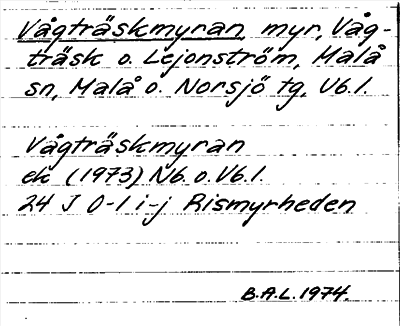 Vågträskmyran, myr, Våg-
träsk o. Lejonström, Malå
sn, Malå o. Norsjö tg, Vb.l.
Vågträskmyran
ek (1973) Nb. o. Vb.l.
24 J 0-1 i-j Rismyrheden
B.A.L. 1974.